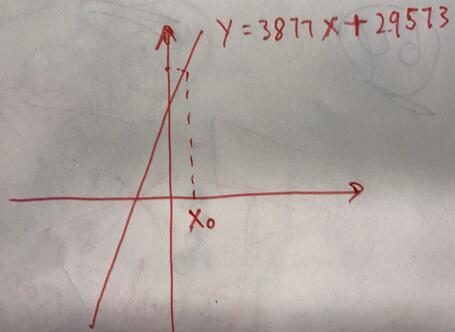 Y=3877X+29573
X₀